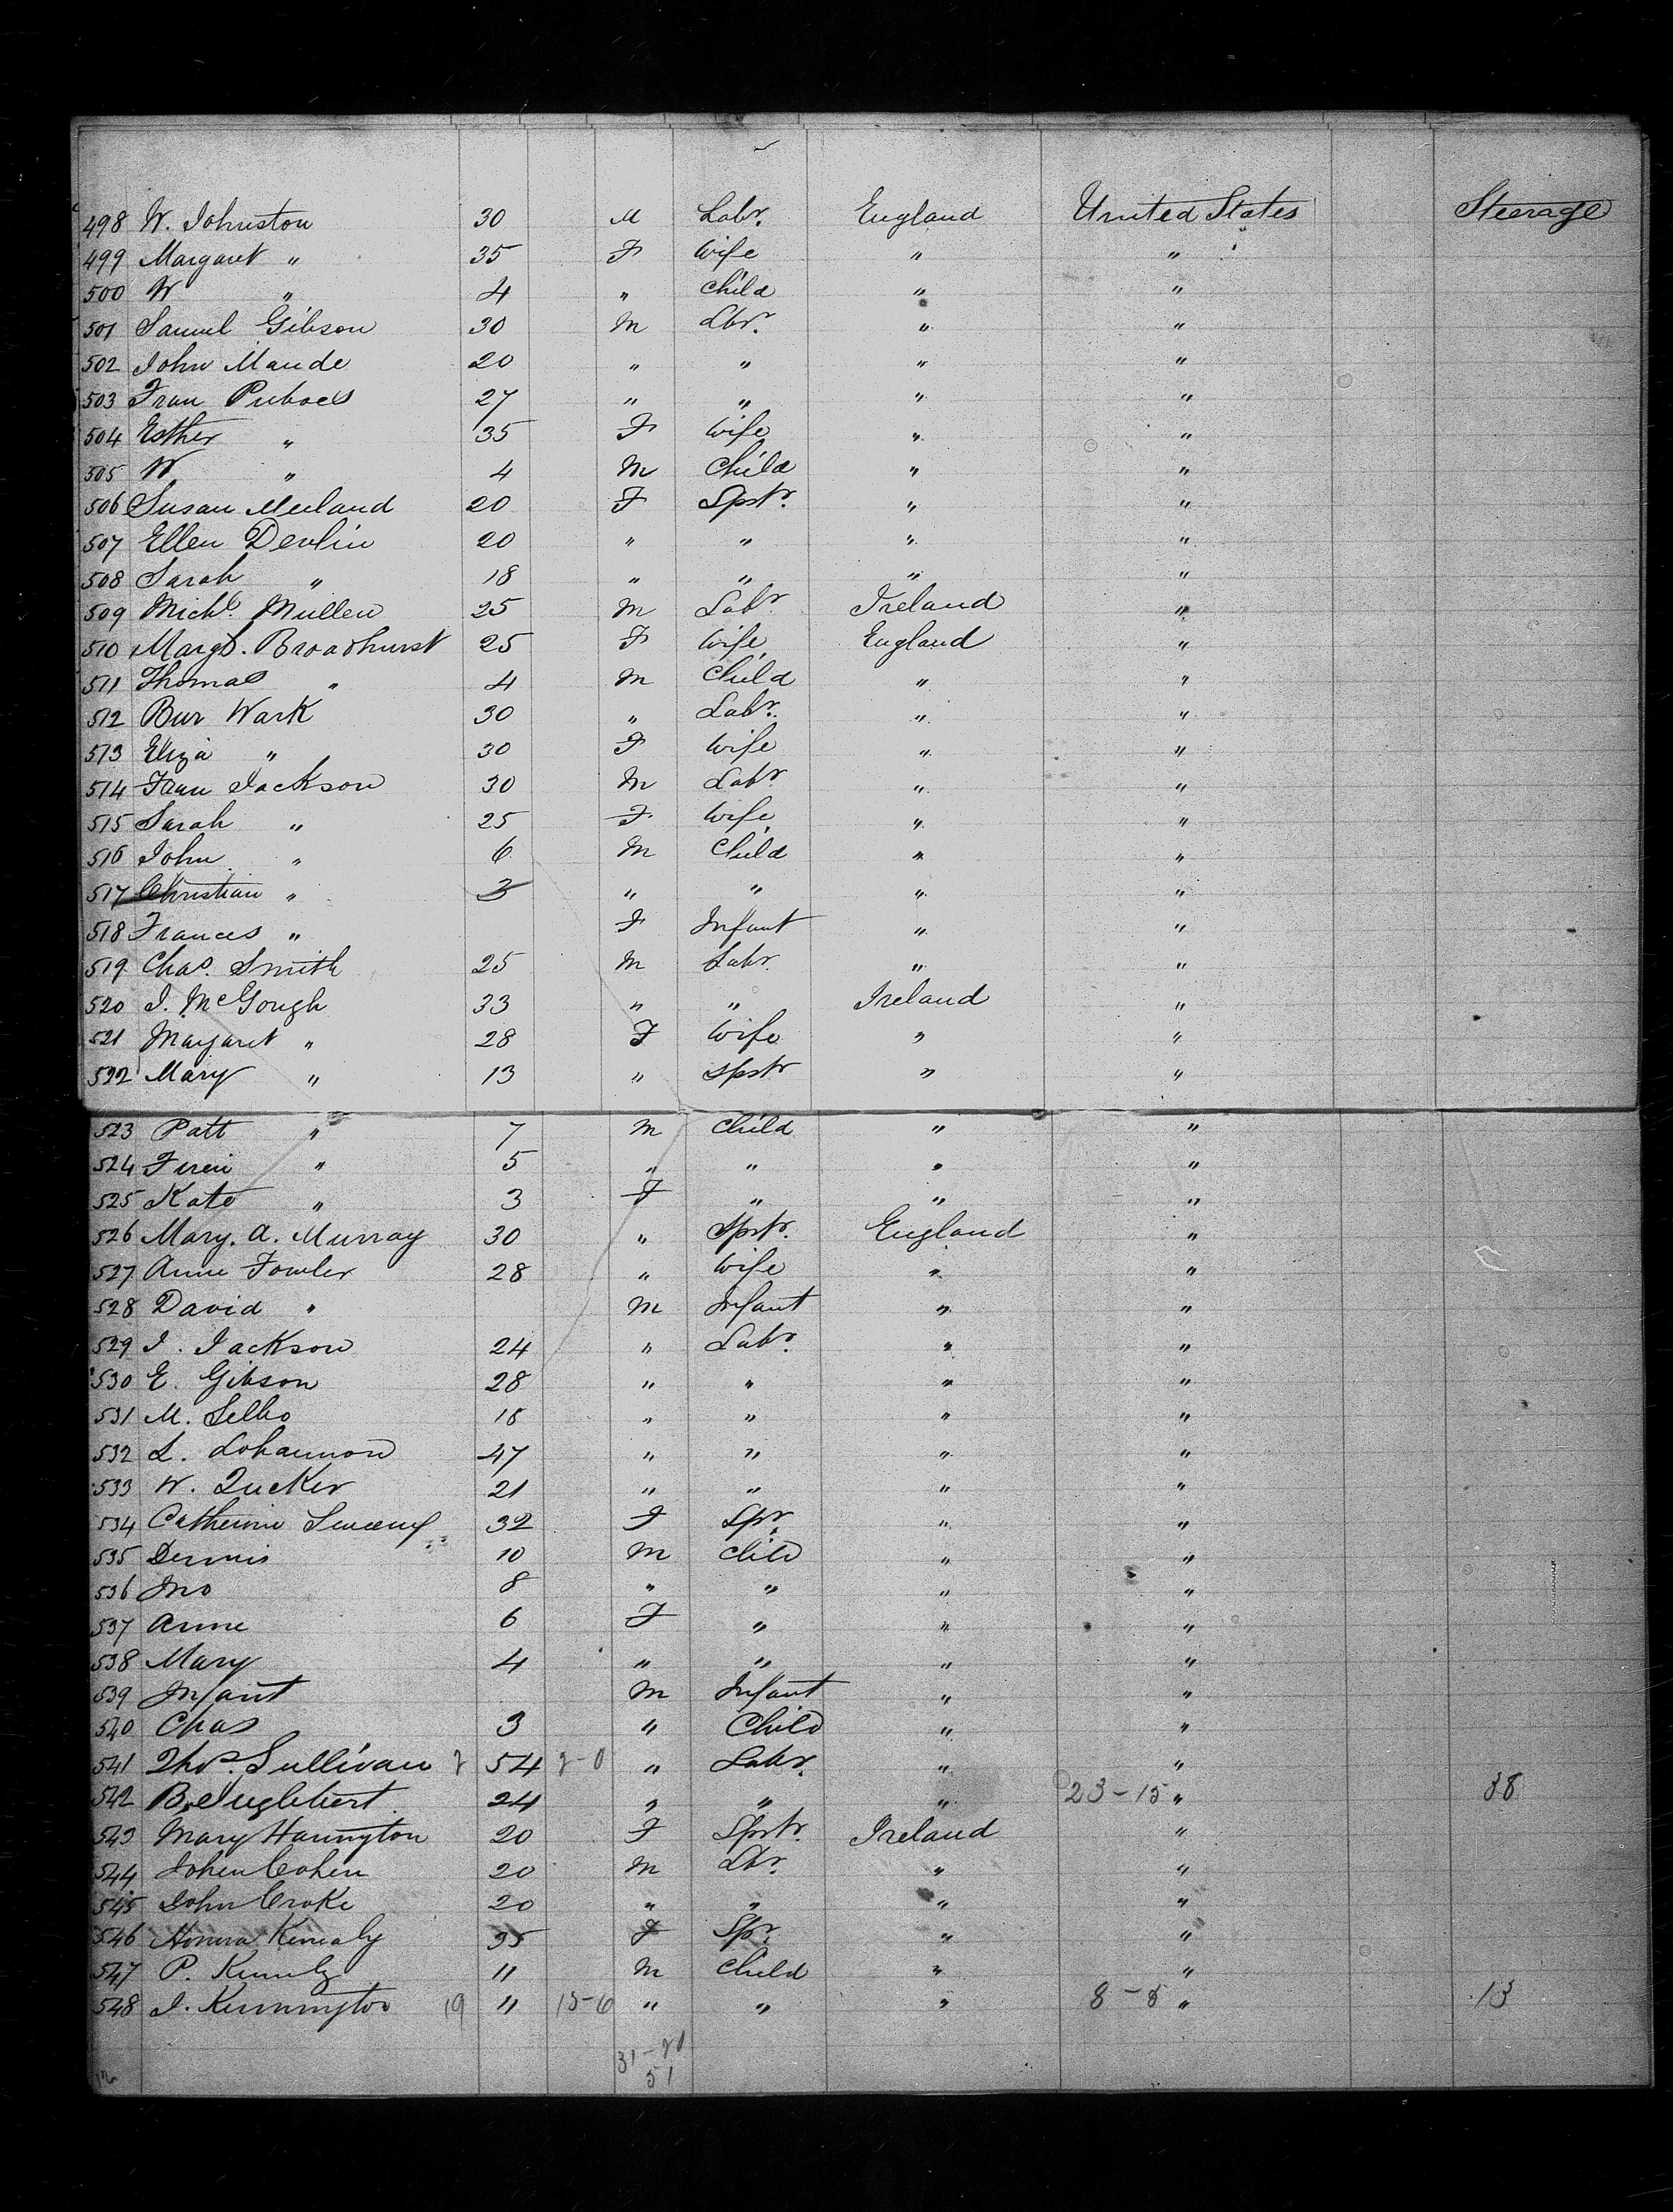 498 W. Johnston 30 M Labr. England United States Steerage
499 Margaret " 35 F Wife " "
500 W " 4 " Child " "
501 Samul Gibson 30 M Lbr. " "
502 John Maude 20 " " " "
503 Fran 27 " " " "
504 Esther " 35 F Wife " "
505 W " 4 M Child " "
506 Susan 20 F Spstr. " "
507 Ellen Devlin 20 " " " "
508 Sarah " 18 " " " "
509 Michl. Mullen 25 M Labr. Ireland "
510 Margt. Broadhurst 25 F Wife England "
511 Thomas " 4 M Child " "
512 Bur Wark 30 " Labr. " "
513 Eliza " 30 F Wife " "
514 Fran Jackson 30 M Labr " "
515 Sarah " 25 F Wife " "
516 John " 6 M Child " "
517 Christian " 3 " " " "
518 Frances " F Infant " "
519 Chas. Smith 25 M Labr. " "
520 J. McGough 33 " " Ireland "
521 Margaret " 28 F Wife " "
522 Mary " 13 " Spstr " "
523 Patt " 7 M Child " "
524 " 5 " " " "
525 Kate " 3 F " " "
526 Mary. A. Murray 30 " Spstr. England "
527 Anne Fowler 28 " Wife " "
528 David " M Infant " "
529 J. Jackson 24 " Labr. " "
530 E. Gibson 28 " " " "
531 M. 18 " " " "
532 L. Lohannon 47 " " " "
533 W. Tucker 21 " " " "
534 Catherine 32 F Spr. " "
535 Dennis 10 M Child " "
536 Jno 8 " " " "
537 Anne 6 F " " "
538 Mary 4 " " " "
539 Infant M Infant " "
540 Chas 3 " Child " "
541 Thos. Sullivan 54 " Labr. " "
542 B. Inglebert 24 " " " 23-15 " 38
543 Mary Harington 20 F Spstr. Ireland "
544 John Cohen 20 M Lbr. " "
545 John Croke 20 " " " "
546 Honora Kinealy 35 F Spr. " "
547 P. 11 M Child " "
548 J. 19 11 15-6 " " " 8-5 " 13
51